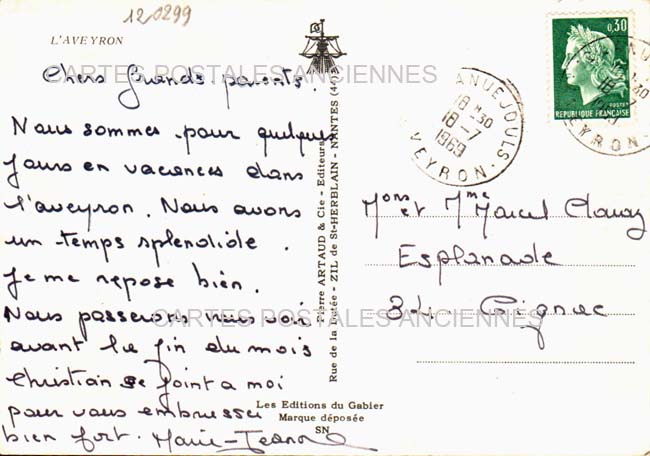 120299
L'AVEYRON
Chers Grands-parents.
Nous sommes pour quelques
jours en vacances dans
l'aveyron. Nous avons
un temps splendide.
Je me repose bien.
Nous passerons vous voir
avant la fin du mois
Christian se joint a moi
pour vous embrasser
bien fort. Marie-Jeanne
CARTES POSTALES ANCIENNES
CARTES POSTALES ANCIENNES
Pierre ARTAUD & Cie - Editeurs
Rue de la Dutée - ZIL de St-HERBLAIN - NANTES (44)
Les Editions du Gabier
Marque déposée
SN
ANUEJOULS
18 H30
18-7
1969
AVEYRON
0,30
POSTES
REPUBLIQUE FRANÇAISE
Mons et Mme Marcel
Esplanade
34 - Gignac